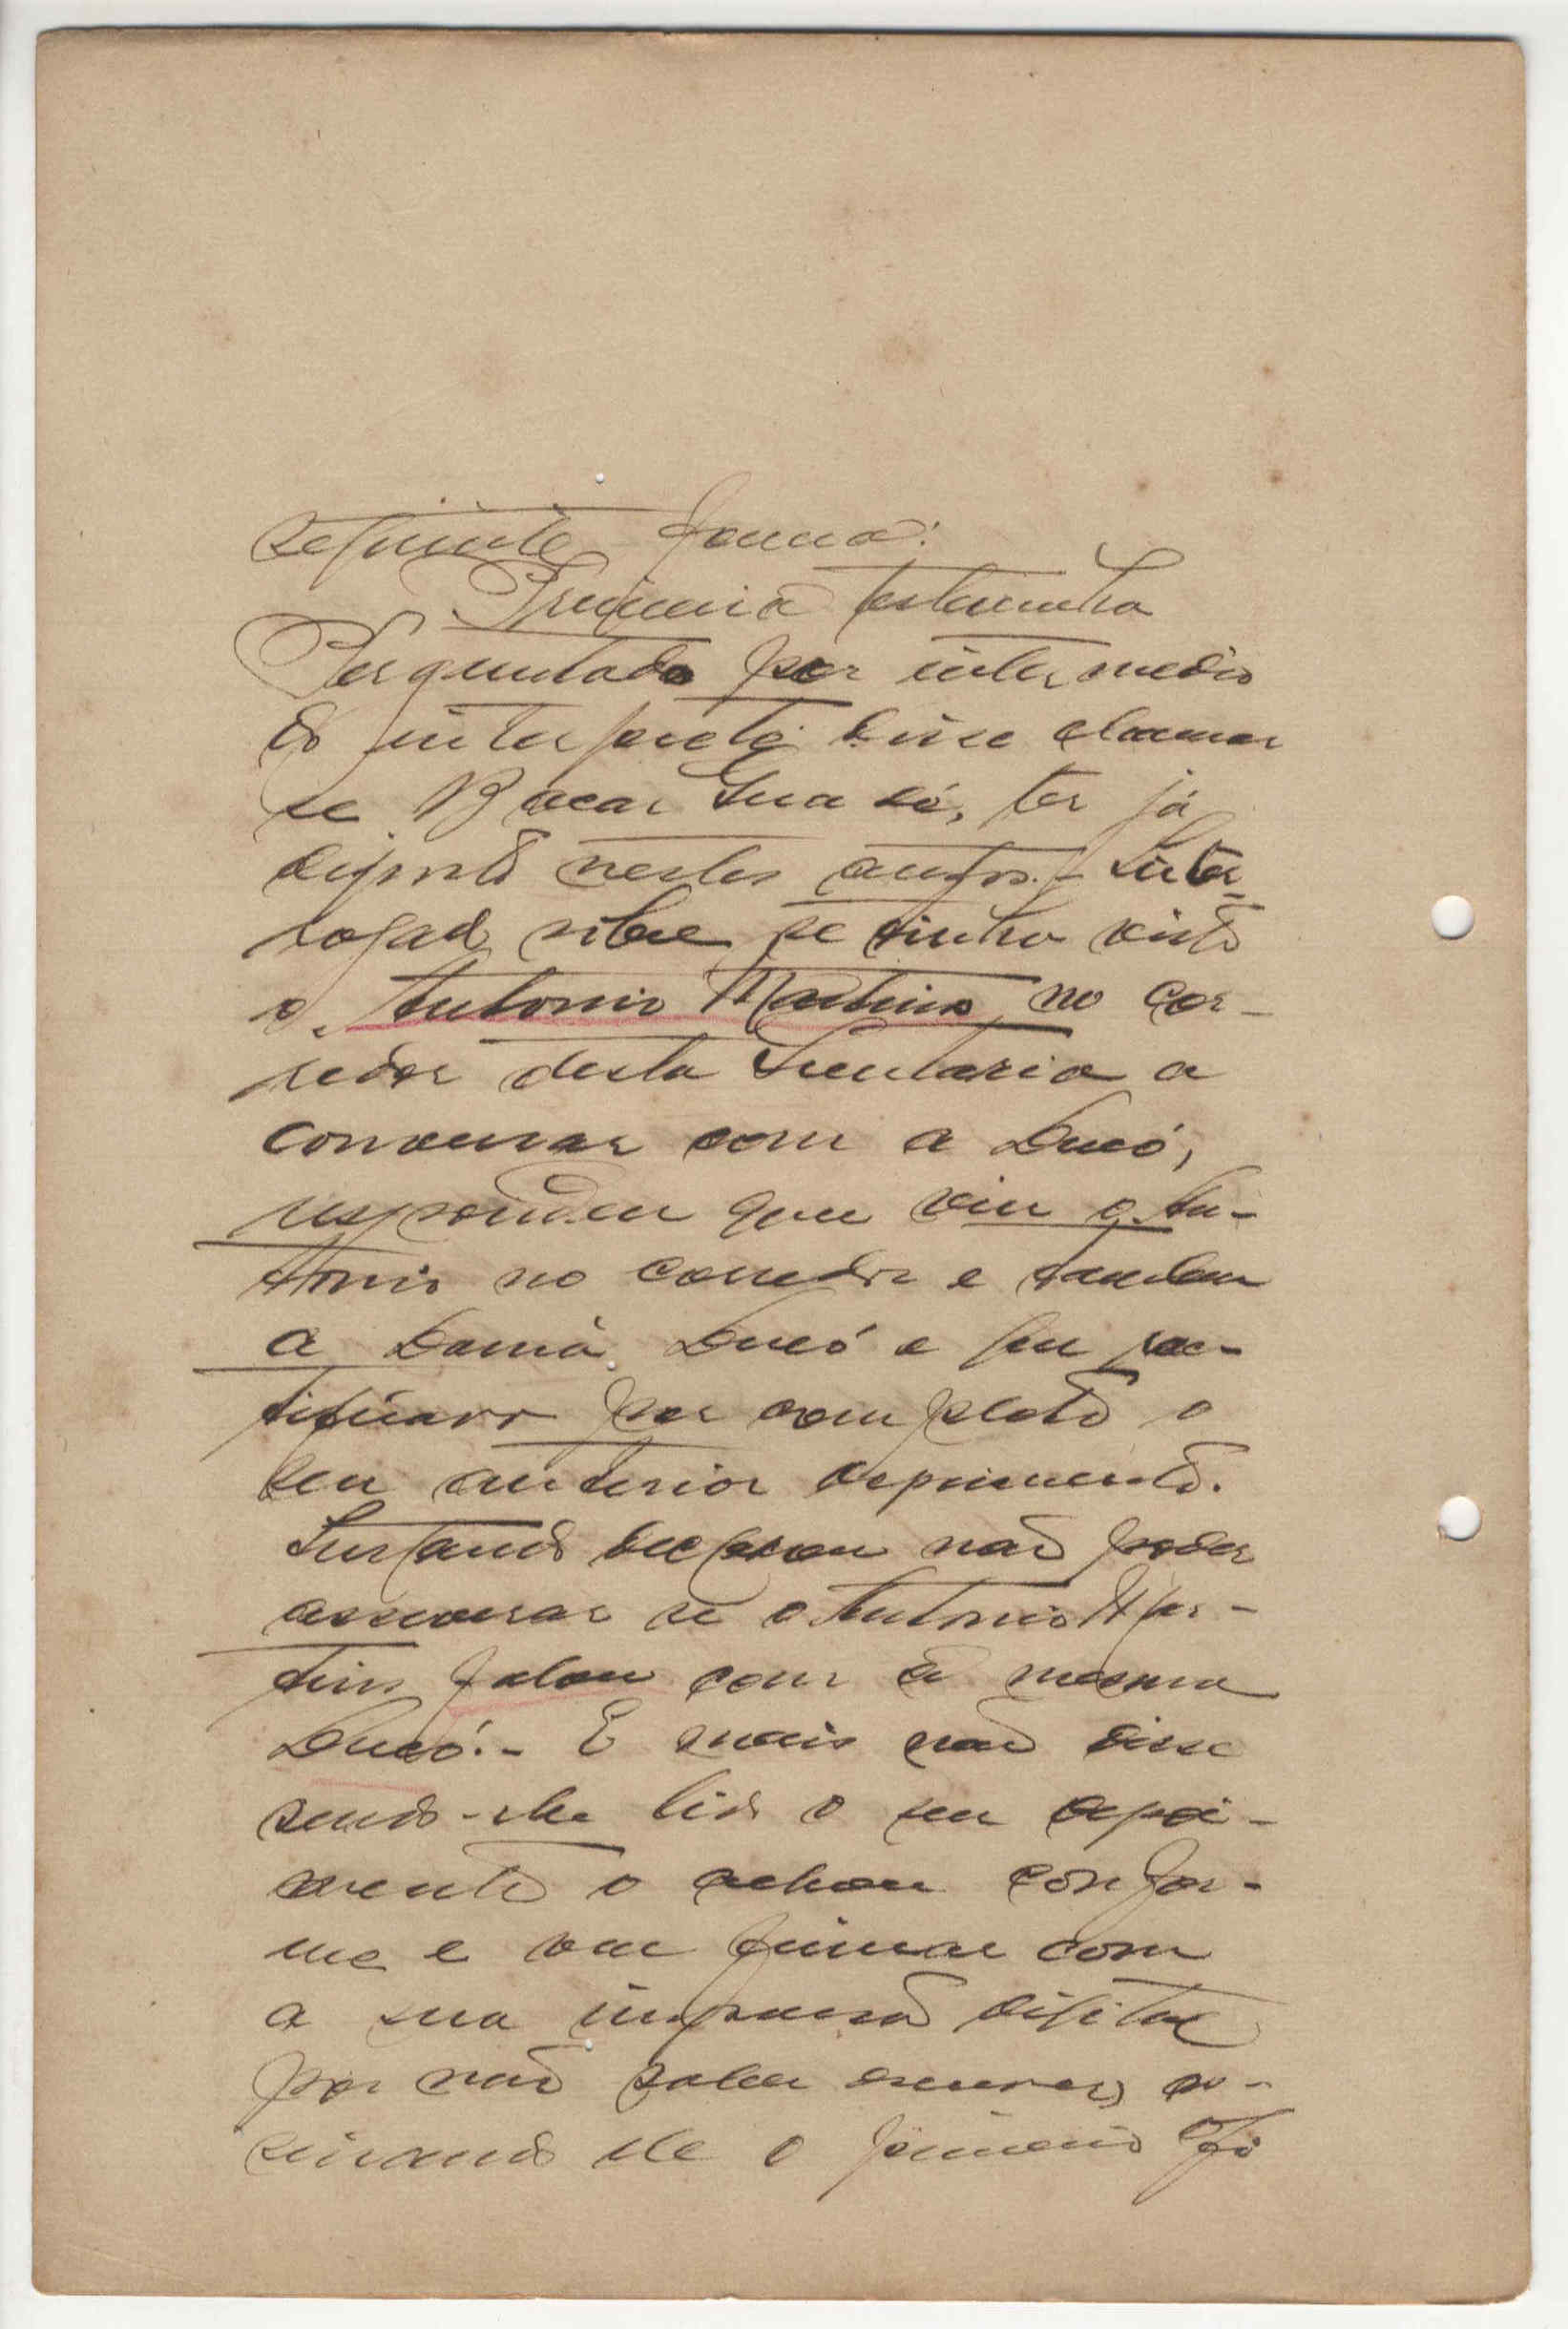 seguinte forma:
Primeira testemunha
Perguntado por intermedio
do interprete disse chamar
se Bacar Suncó, ter já
deposto nestes autos. - Inter
rogado sobre se tinha visto
o Antonio Martins no cor-
redor desta Secretaria a
conversar com a Duco,
respondeu que viu o An-
tonio no corredor e tambem
a Damá Ducó e seu
por completo o
seu anterior depoimento.
Instando declarou não poder
asseverar se o Antonio Mar-
tins falou com a mesma
Ducó. - E mais não disse
sendo-lhe lido o seu depoi-
mento o achou confor-
me e vae firmar com
a sua impressão digital
por não saber escrever, as-
sinando ele o primeiro